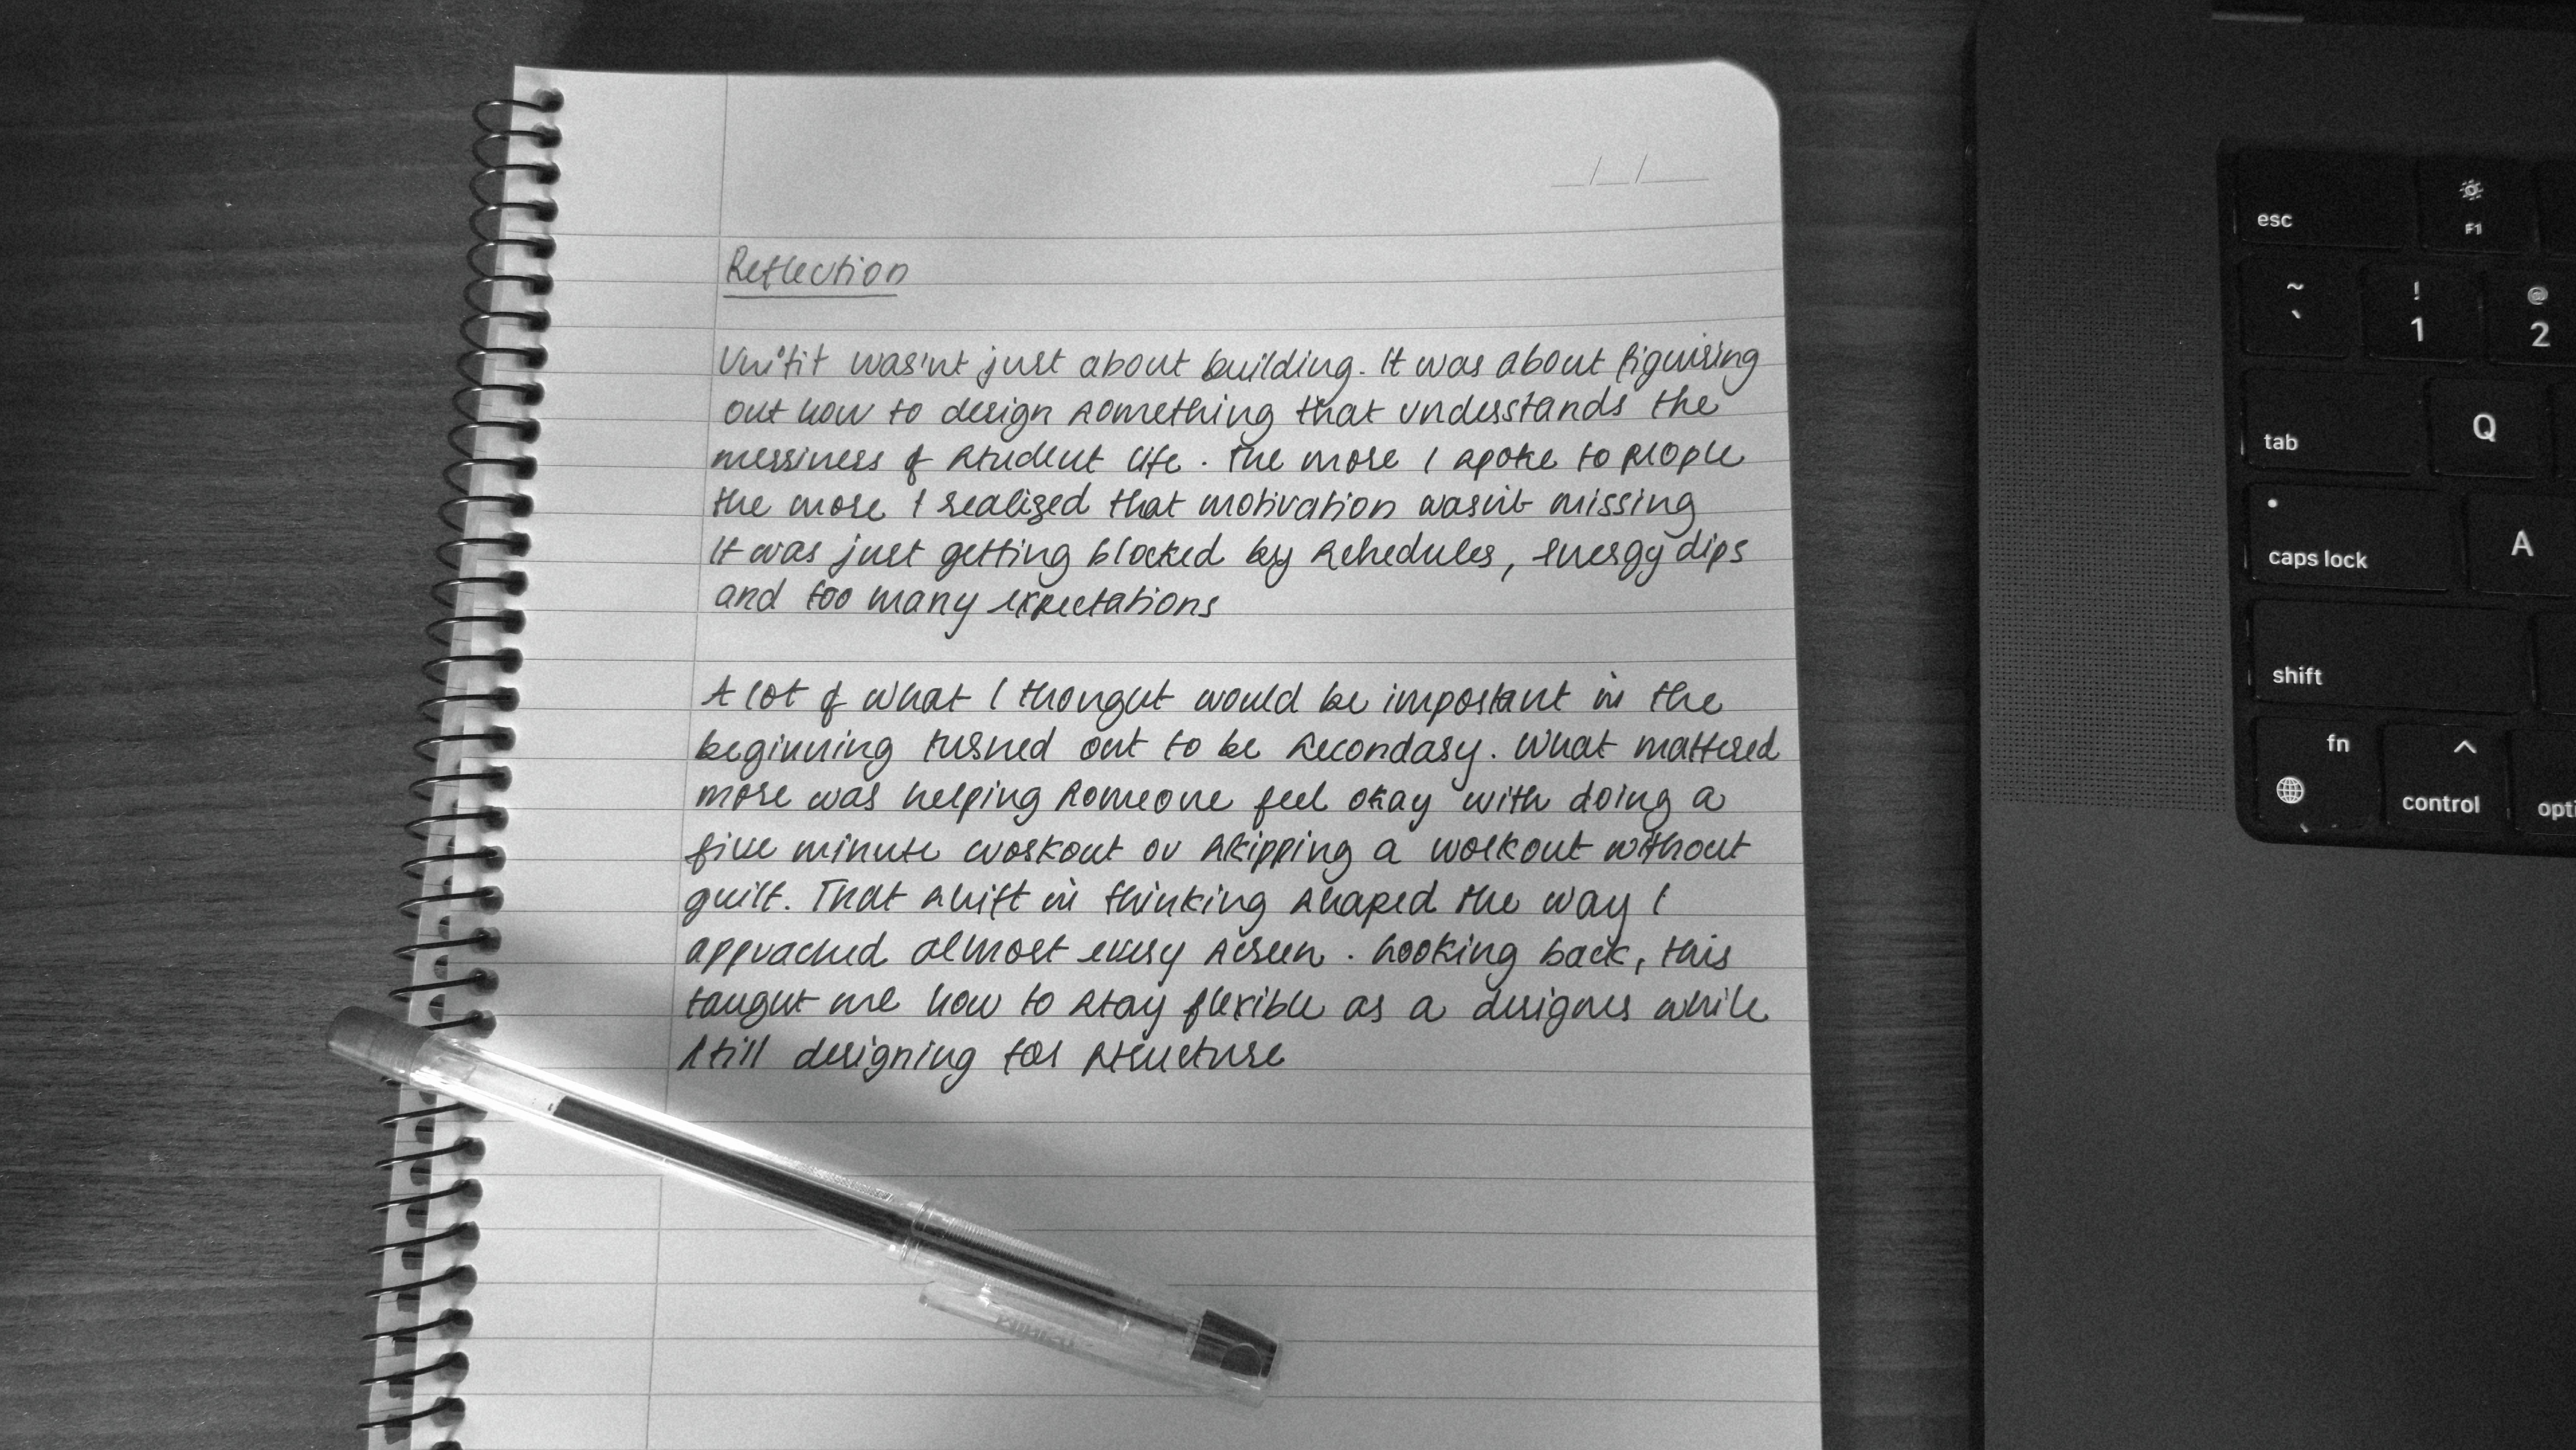 Reflection
Unifit wasn't just about building. It was about figuring
out how to design something that understands the
messiness of student life. The more I spoke to people
the more I realized that motivation wasn't missing
It was just getting blocked by schedules, energy dips
and too many expectations
A lot of what I thought would be important in the
beginning turned out to be secondary. What mattered
more was helping someone feel okay with doing a
five minute workout or skipping a workout without
guilt. That shift in thinking shaped the way I
approached almost every screen. Looking back, this
taught me how to stay flexible as a designer while
still designing for structure
__/__/____
esc
F1
~
`
!
1
@
2
tab
Q
caps lock
A
shift
fn
^
control
opti